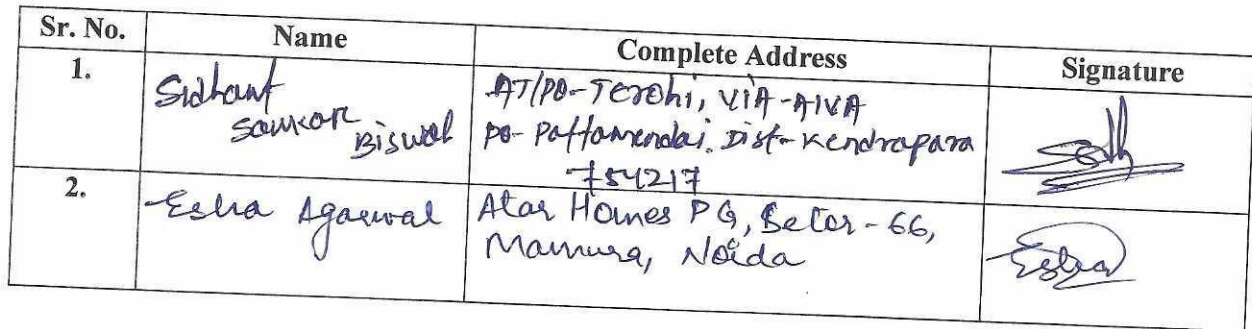 Sr. No. Name Complete Address Signature
1. Sidhant Sankar Biswal
AT/PO-Terohi, VIA-AIVA
PO-Pattamendai. Dist-Kendrapara
754217
2. Esha Agarwal
Atar Homes PG, Sector-66,
Mamura, Noida
Esha